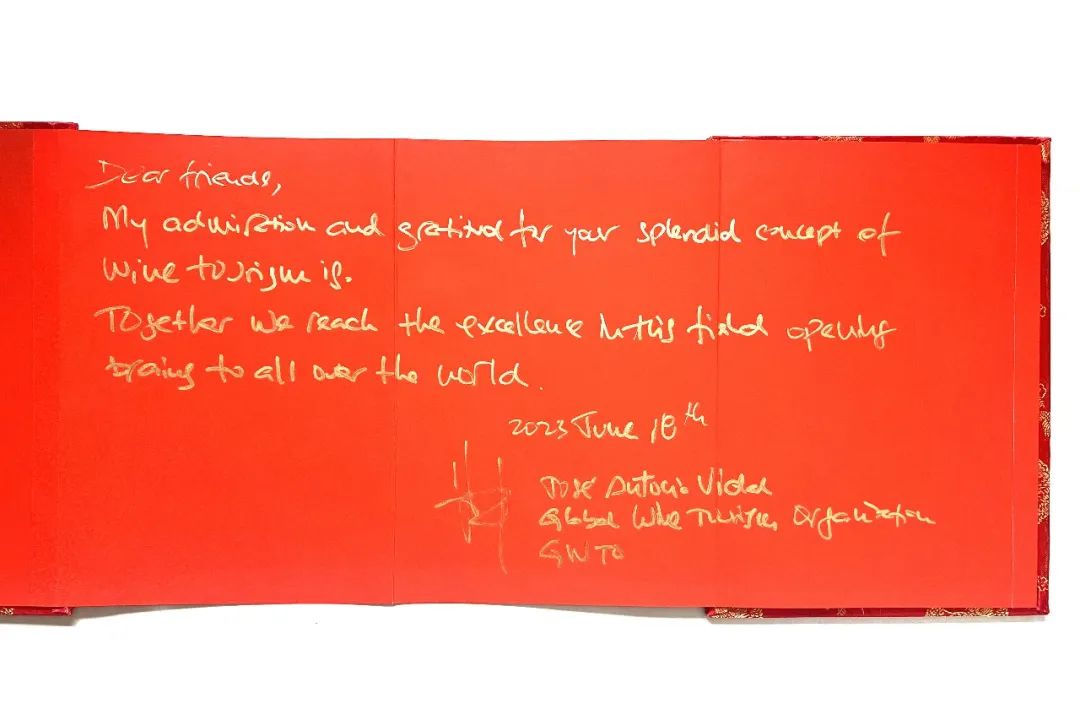 Dear friends,
My admiration and gratitud for your splendid concept of
wine tourism
Together we reach the excellence in this field opening
to all over the world.
2023 June 18th
José Antonio Vidal
Global Wine Tourism Organization
GWTO